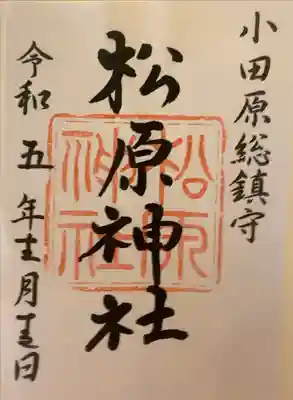 小田原総鎮守
松原神社
松原
神社
令和五年月日